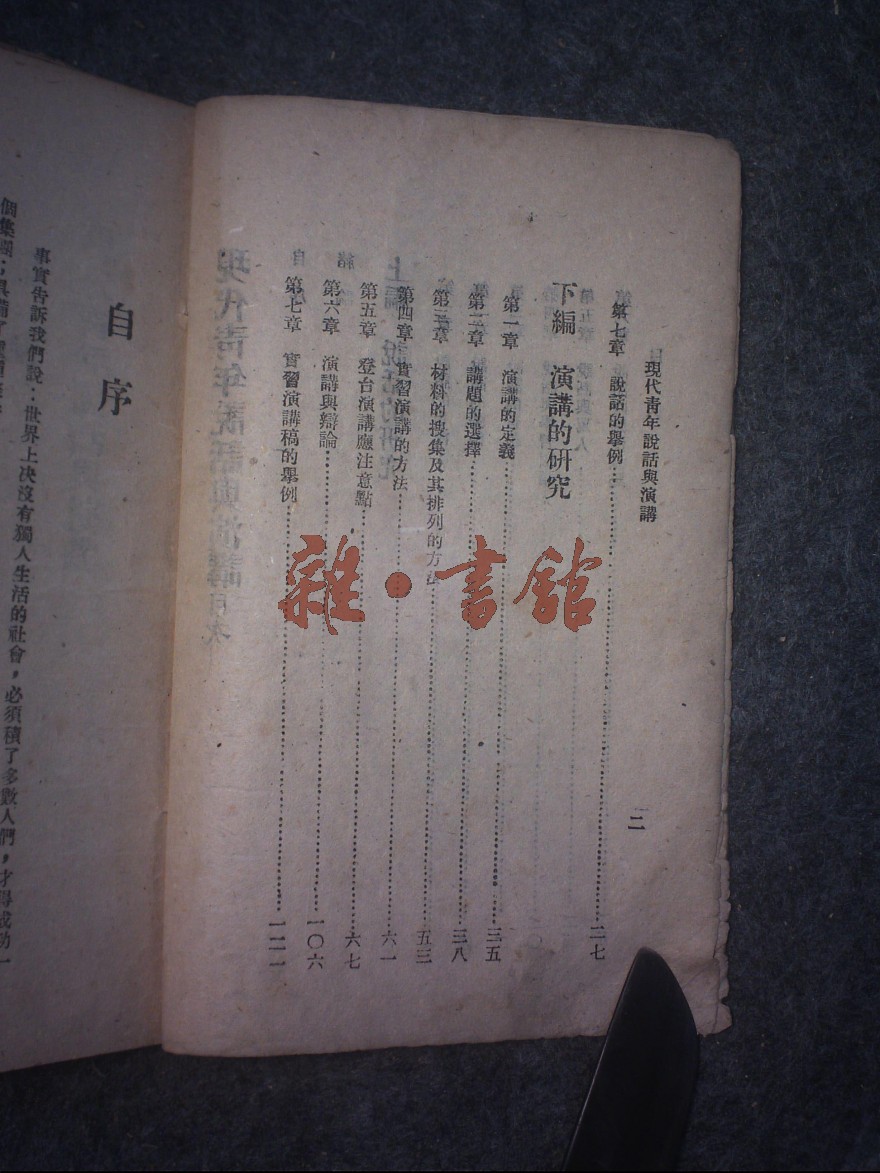 現代靑年說話與演講
二
第七章　說話的舉例………二七
下編　演講的研究
第一章　演講的定義………三五
第二章　講題的選擇………三八
第三章　材料的搜集及其排列的方法………五三
第四章　實習演講的方法………六一
第五章　登台演講應注意點………六七
第六章　演講與辯論………一〇六
第七章　實習演講稿的舉例………一二一
雜・書館
自序
事實告訴我們說：世界上決沒有獨人生活的社會，必須積了多數人們，才得成功一